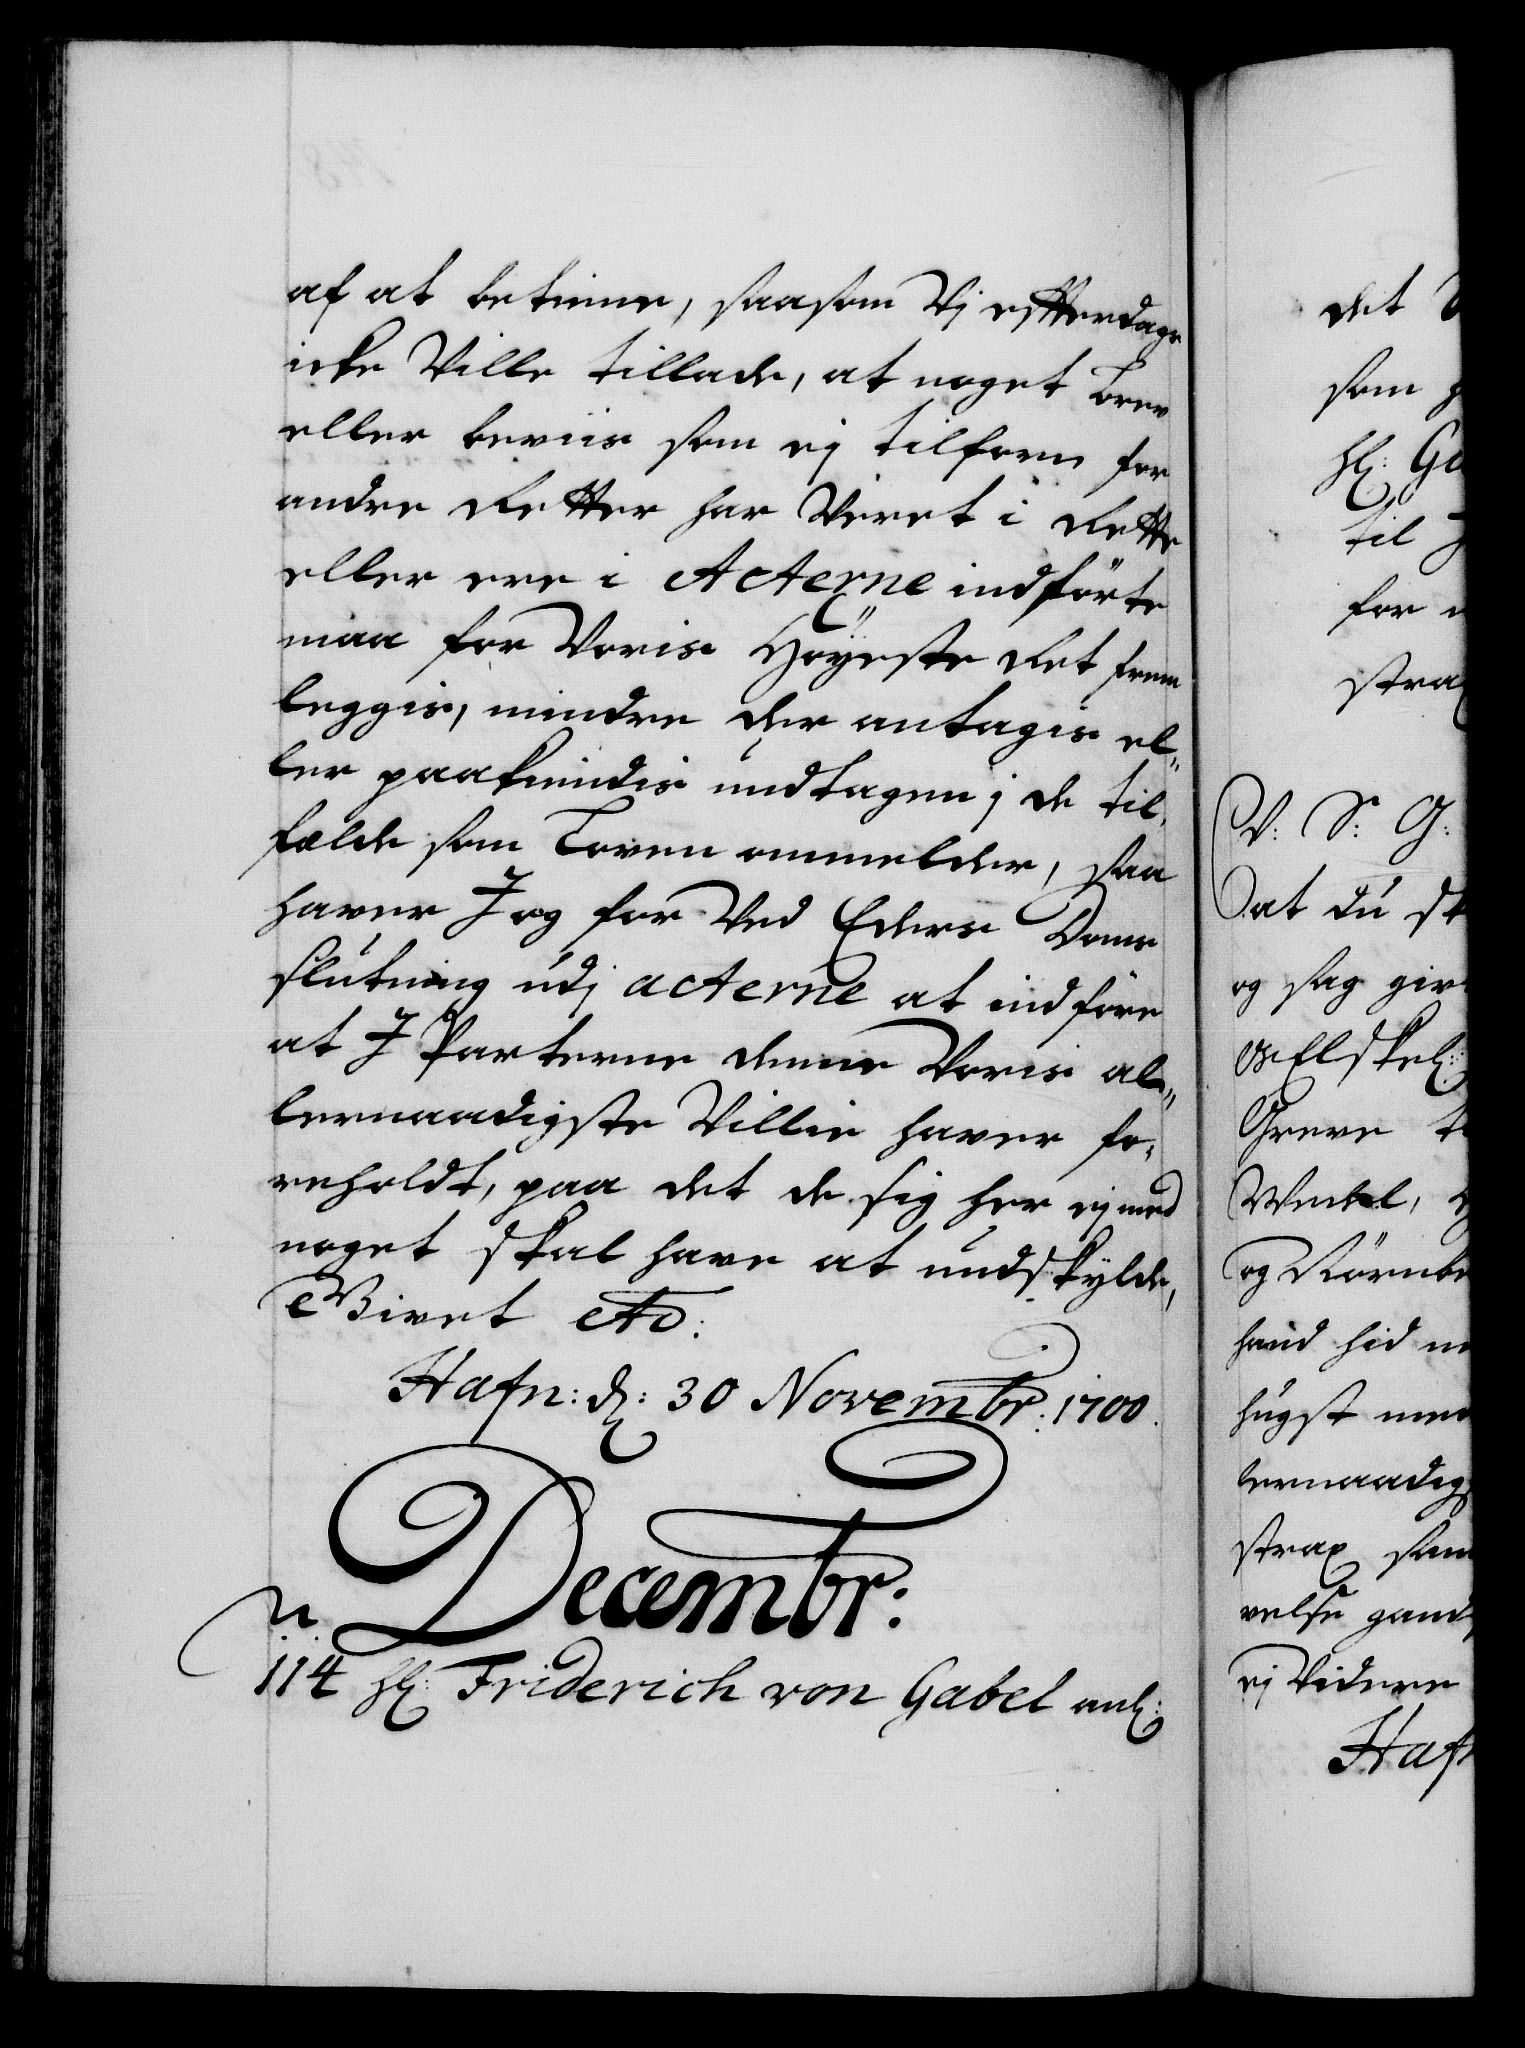 af at betiene, saasom Vj effterdags
icke Ville tillade, at noget brev
eller beviis som ej tilforn for
andre Retter har Veret i Rette
eller ere i Acterne indförte
maa for Voris Höyeste Ret frem
leggis, mindre der antagis el-
ler paakiendis undtagen j de til-
fælde som Loven ommelder, saa
haver J og for Ved Eders Doms
slutning udj acterne at indföre
at J Parterne denne Voris al-
lernaadigste Villie haver fo-
reholdt, paa det de sig her ej med
noget skal have at undskylde,
Givet etc:
Hafn: d: 30 Novembr: 1700.
Decembr:
n
114 H: Friderich von Gabel anl:
det
som
H: Ga
til
for
stra
V: S: G:
at du sk
og sag giv
os Elskel:
Greve
Wedel,
og
haand hid
hugst med
lernaadigs
strax sam
velse
ej Videre
Hafn